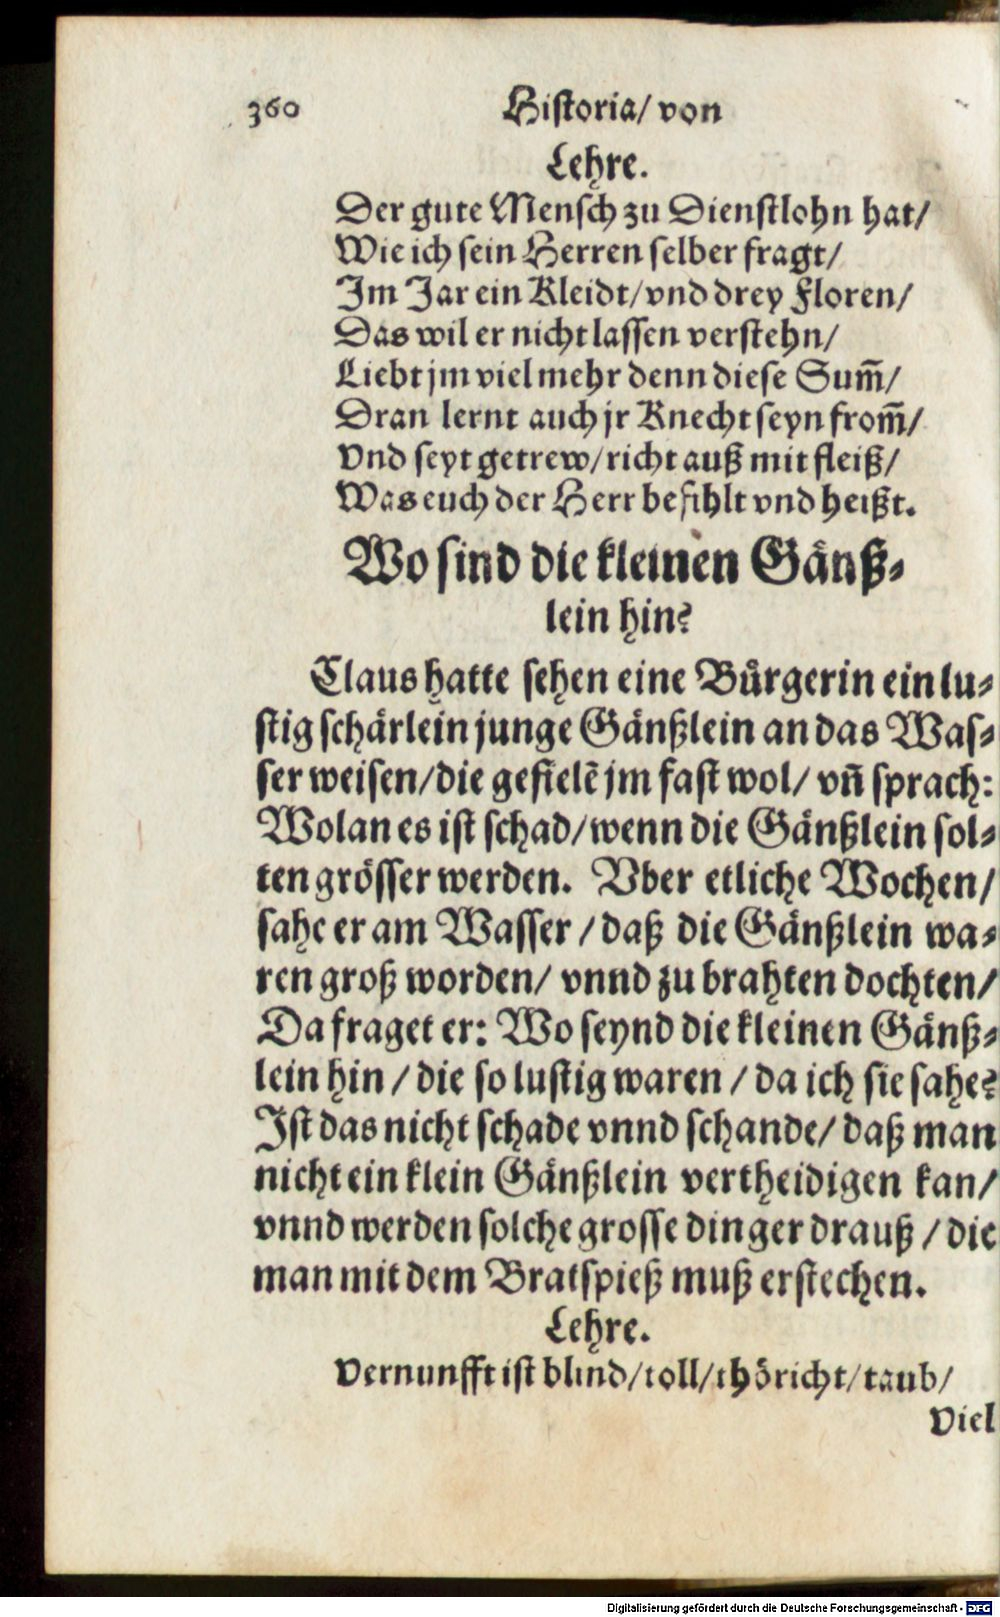 360 Historia/ von
Lehre.
Der gute Mensch zu Dienstlohn hat/
Wie ich sein Herren selber fragt/
Im Jar ein Kleidt/vnd drey Floren/
Das wil er nicht lassen verstehn/
Liebt jm viel mehr denn diese Sum̃/
Dran lernt auch jr Knecht seyn from̃/
Vnd seyt getrew/richt auß mit fleiß/
Was euch der Herr befihlt vnd heißt.
Wo sind die kleinen Gänß⸗
lein hin?
Claus hatte sehen eine Bürgerin ein lu⸗
stig schärlein junge Gänßlein an das Was⸗
ser weisen/die gefielẽ jm fast wol/ vñ sprach:
Wolan es ist schad/wenn die Gänßlein sol⸗
ten grösser werden. Vber etliche Wochen/
sahe er am Wasser /daß die Gänßlein wa⸗
ren groß worden/ vnnd zu brahten dochten/
Da fraget er: Wo seynd die kleinen Gänß⸗
lein hin /die so lustig waren /da ich sie sahe?
Ist das nicht schade vnnd schande/ daß man
nicht ein klein Gänßlein vertheidigen kan/
vnnd werden solche grosse dinger drauß /die
man mit dem Bratspieß muß erstechen.
Lehre.
Vernunfft ist blind/toll/thöricht/taub/
Viel
Digitalisierung gefördert durch die Deutsche Forschungsgemeinschaft - DFG